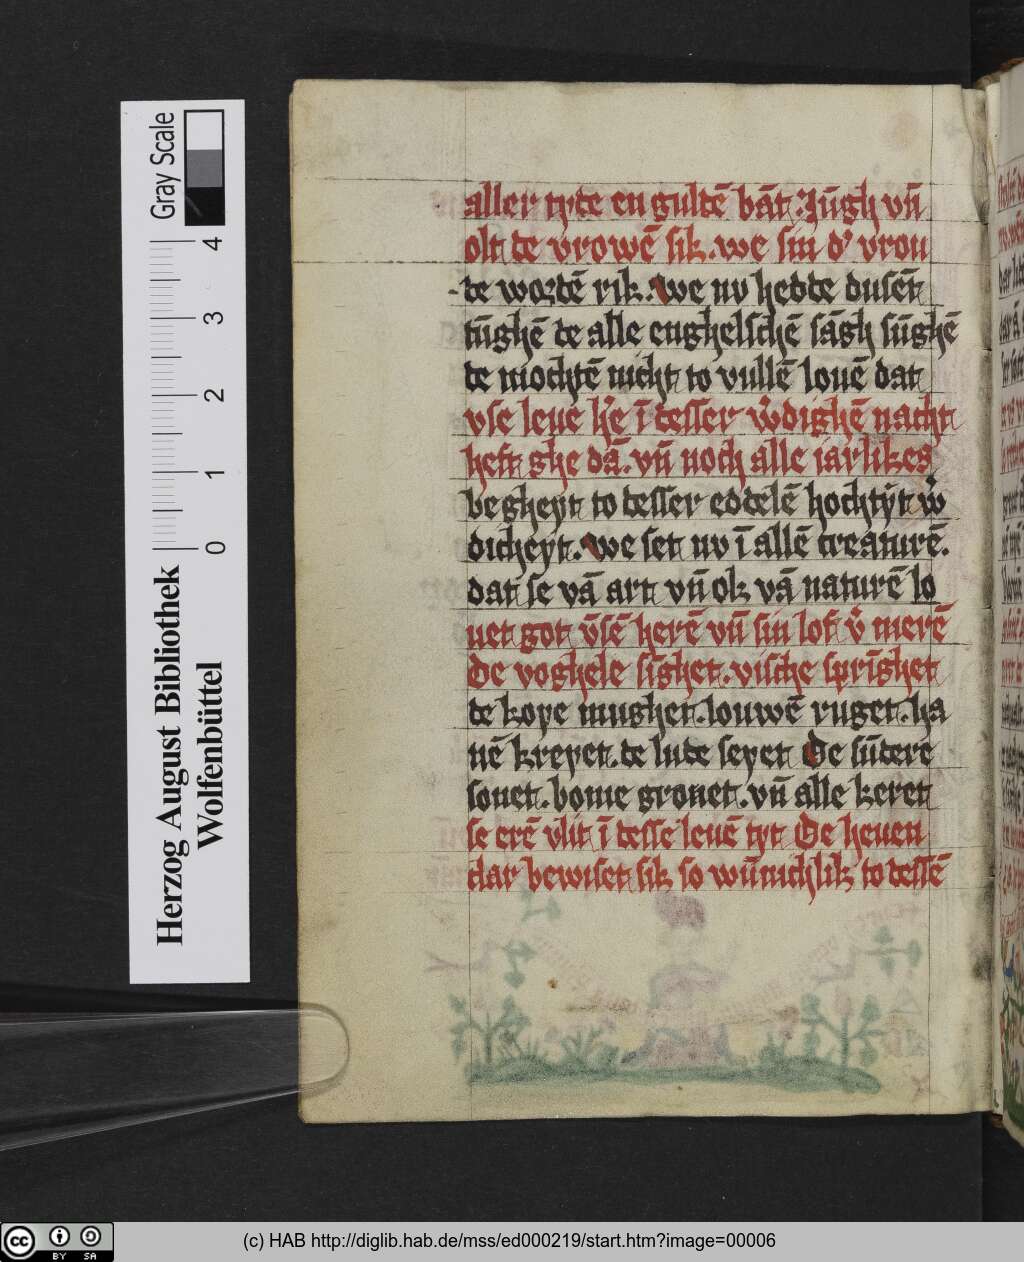 aller tyte en guldē bāt. Jūgh vn̄
olt de vrowē sik. we sin d' vrou
de wordē rik. We nv hedde dusēt
tūghē de alle enghelschē sāgh sūghē
de mochtē nicht to vullē louē dat
vse leue h'e ī desser w'dighē nacht
heft ghe dā. vn̄ noch alle iarlikes
begheyt to desser eddelē hochtyt w'
dicheyt. We set nv ī allē creaturē.
dat se vā art vn̄ ok vā naturē lo
uet got vsē herē vn̄ sin lof v' merē
De voghele sīghet. vische sprīghet
de koye mughet. louwē ruget. ha
nē kreyet. de lude seyet De sūdere
sonet. bome gronet. vn̄ alle keret
se erē vlit ī desse leuē tyt De heuen
dar bewiset sik so wūnichlik to dessē
Gray Scale
4
3
2
1
0
Herzog August Bibliothek
Wolfenbüttel
cc BY SA
(c) HAB http://diglib.hab.de/mss/ed000219/start.htm?image=00006